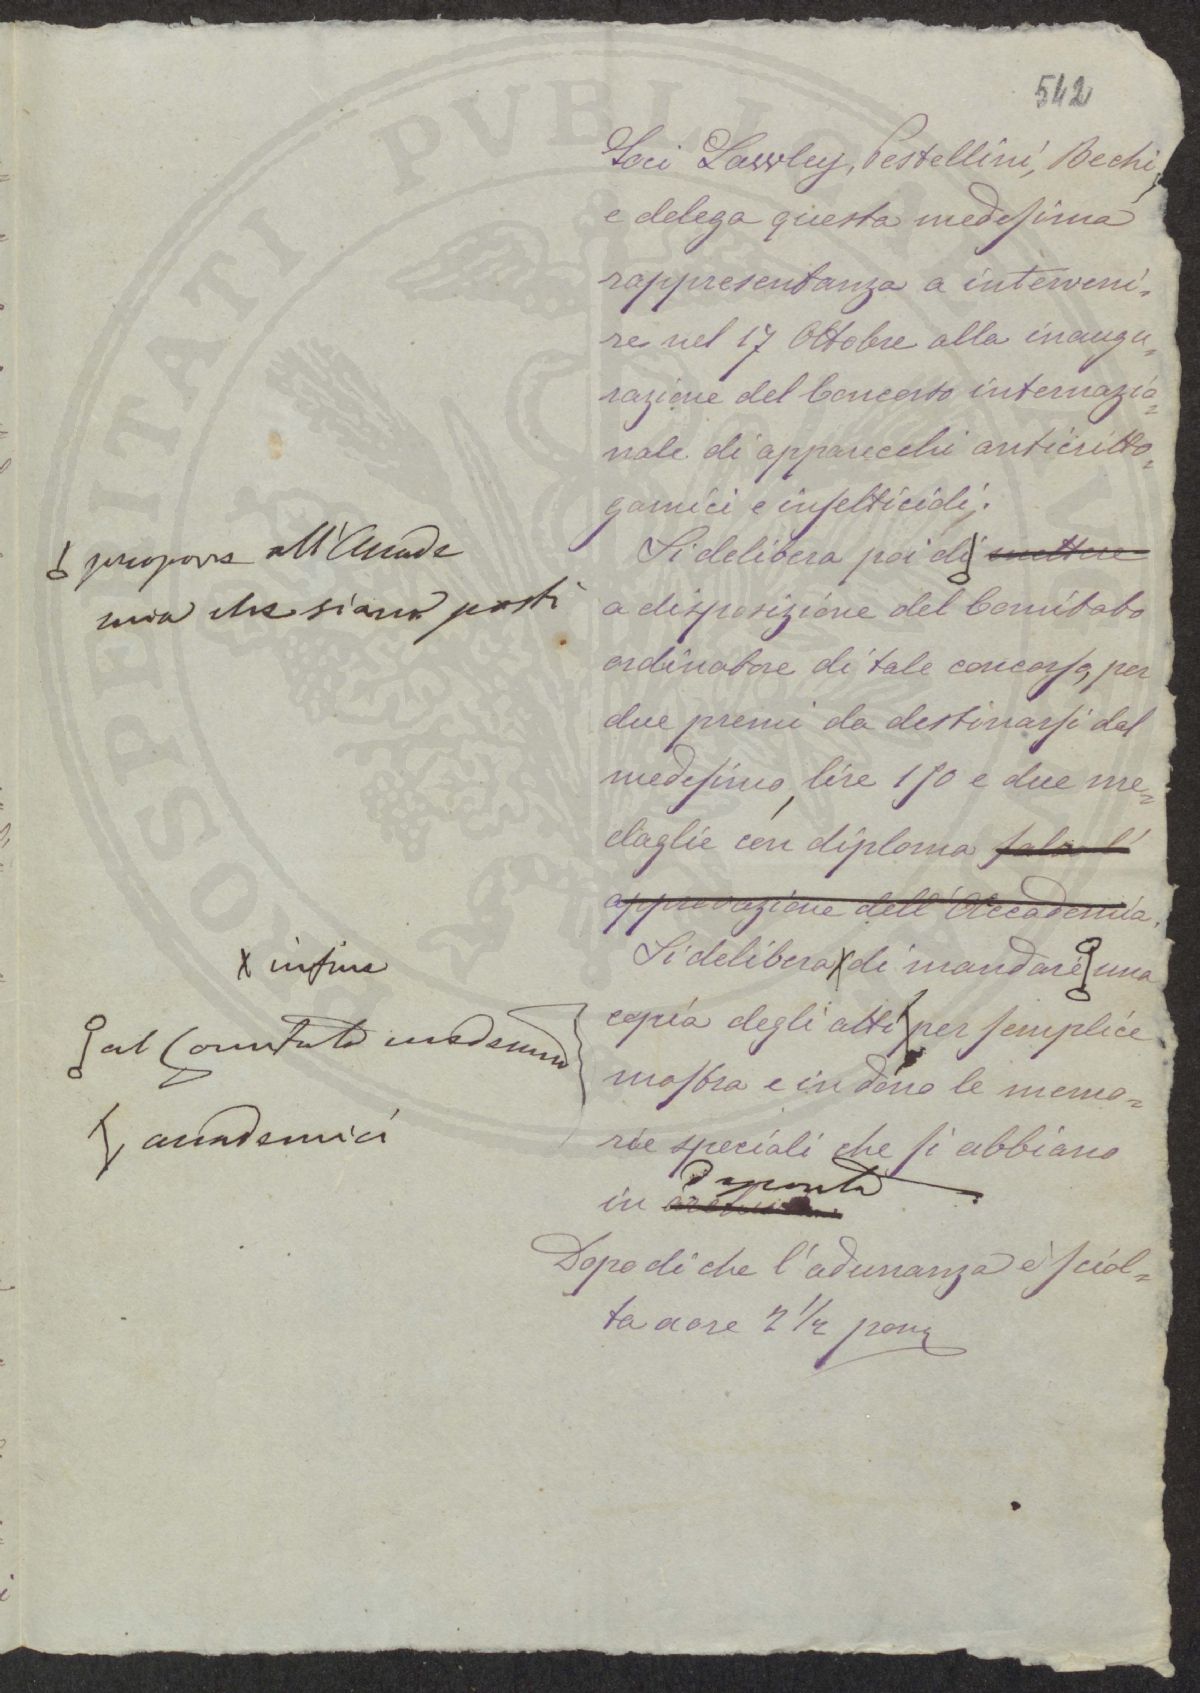 542
Soci Lawley, Pestellini, Bechi,
e delega questa medesima
rappresentanza a interveni-
re nel 17 Ottobre alla inaugu-
razione del Concorso internazio-
nale di apparecchi anticritto-
gamici e insetticidi.
Si delibera poi di mettere
proporre all'Accade
mia che siano posti
a disposizione del Comitato
ordinatore di tale concorso, per
due premi da destinarsi dal
medesimo, lire 150 e due me-
daglie con diploma salvo l'
approvazione dell'Accademia.
Si delibera di mandare una
x infine
copia degli atti per semplice
al Comitato medesimo
mostra e in dono le memo-
accademici
rie speciali che si abbiano
in
Dopo di che l'adunanza è sciol-
ta a ore 2 1/2 pom
SOSPERITATI PUBLICAE